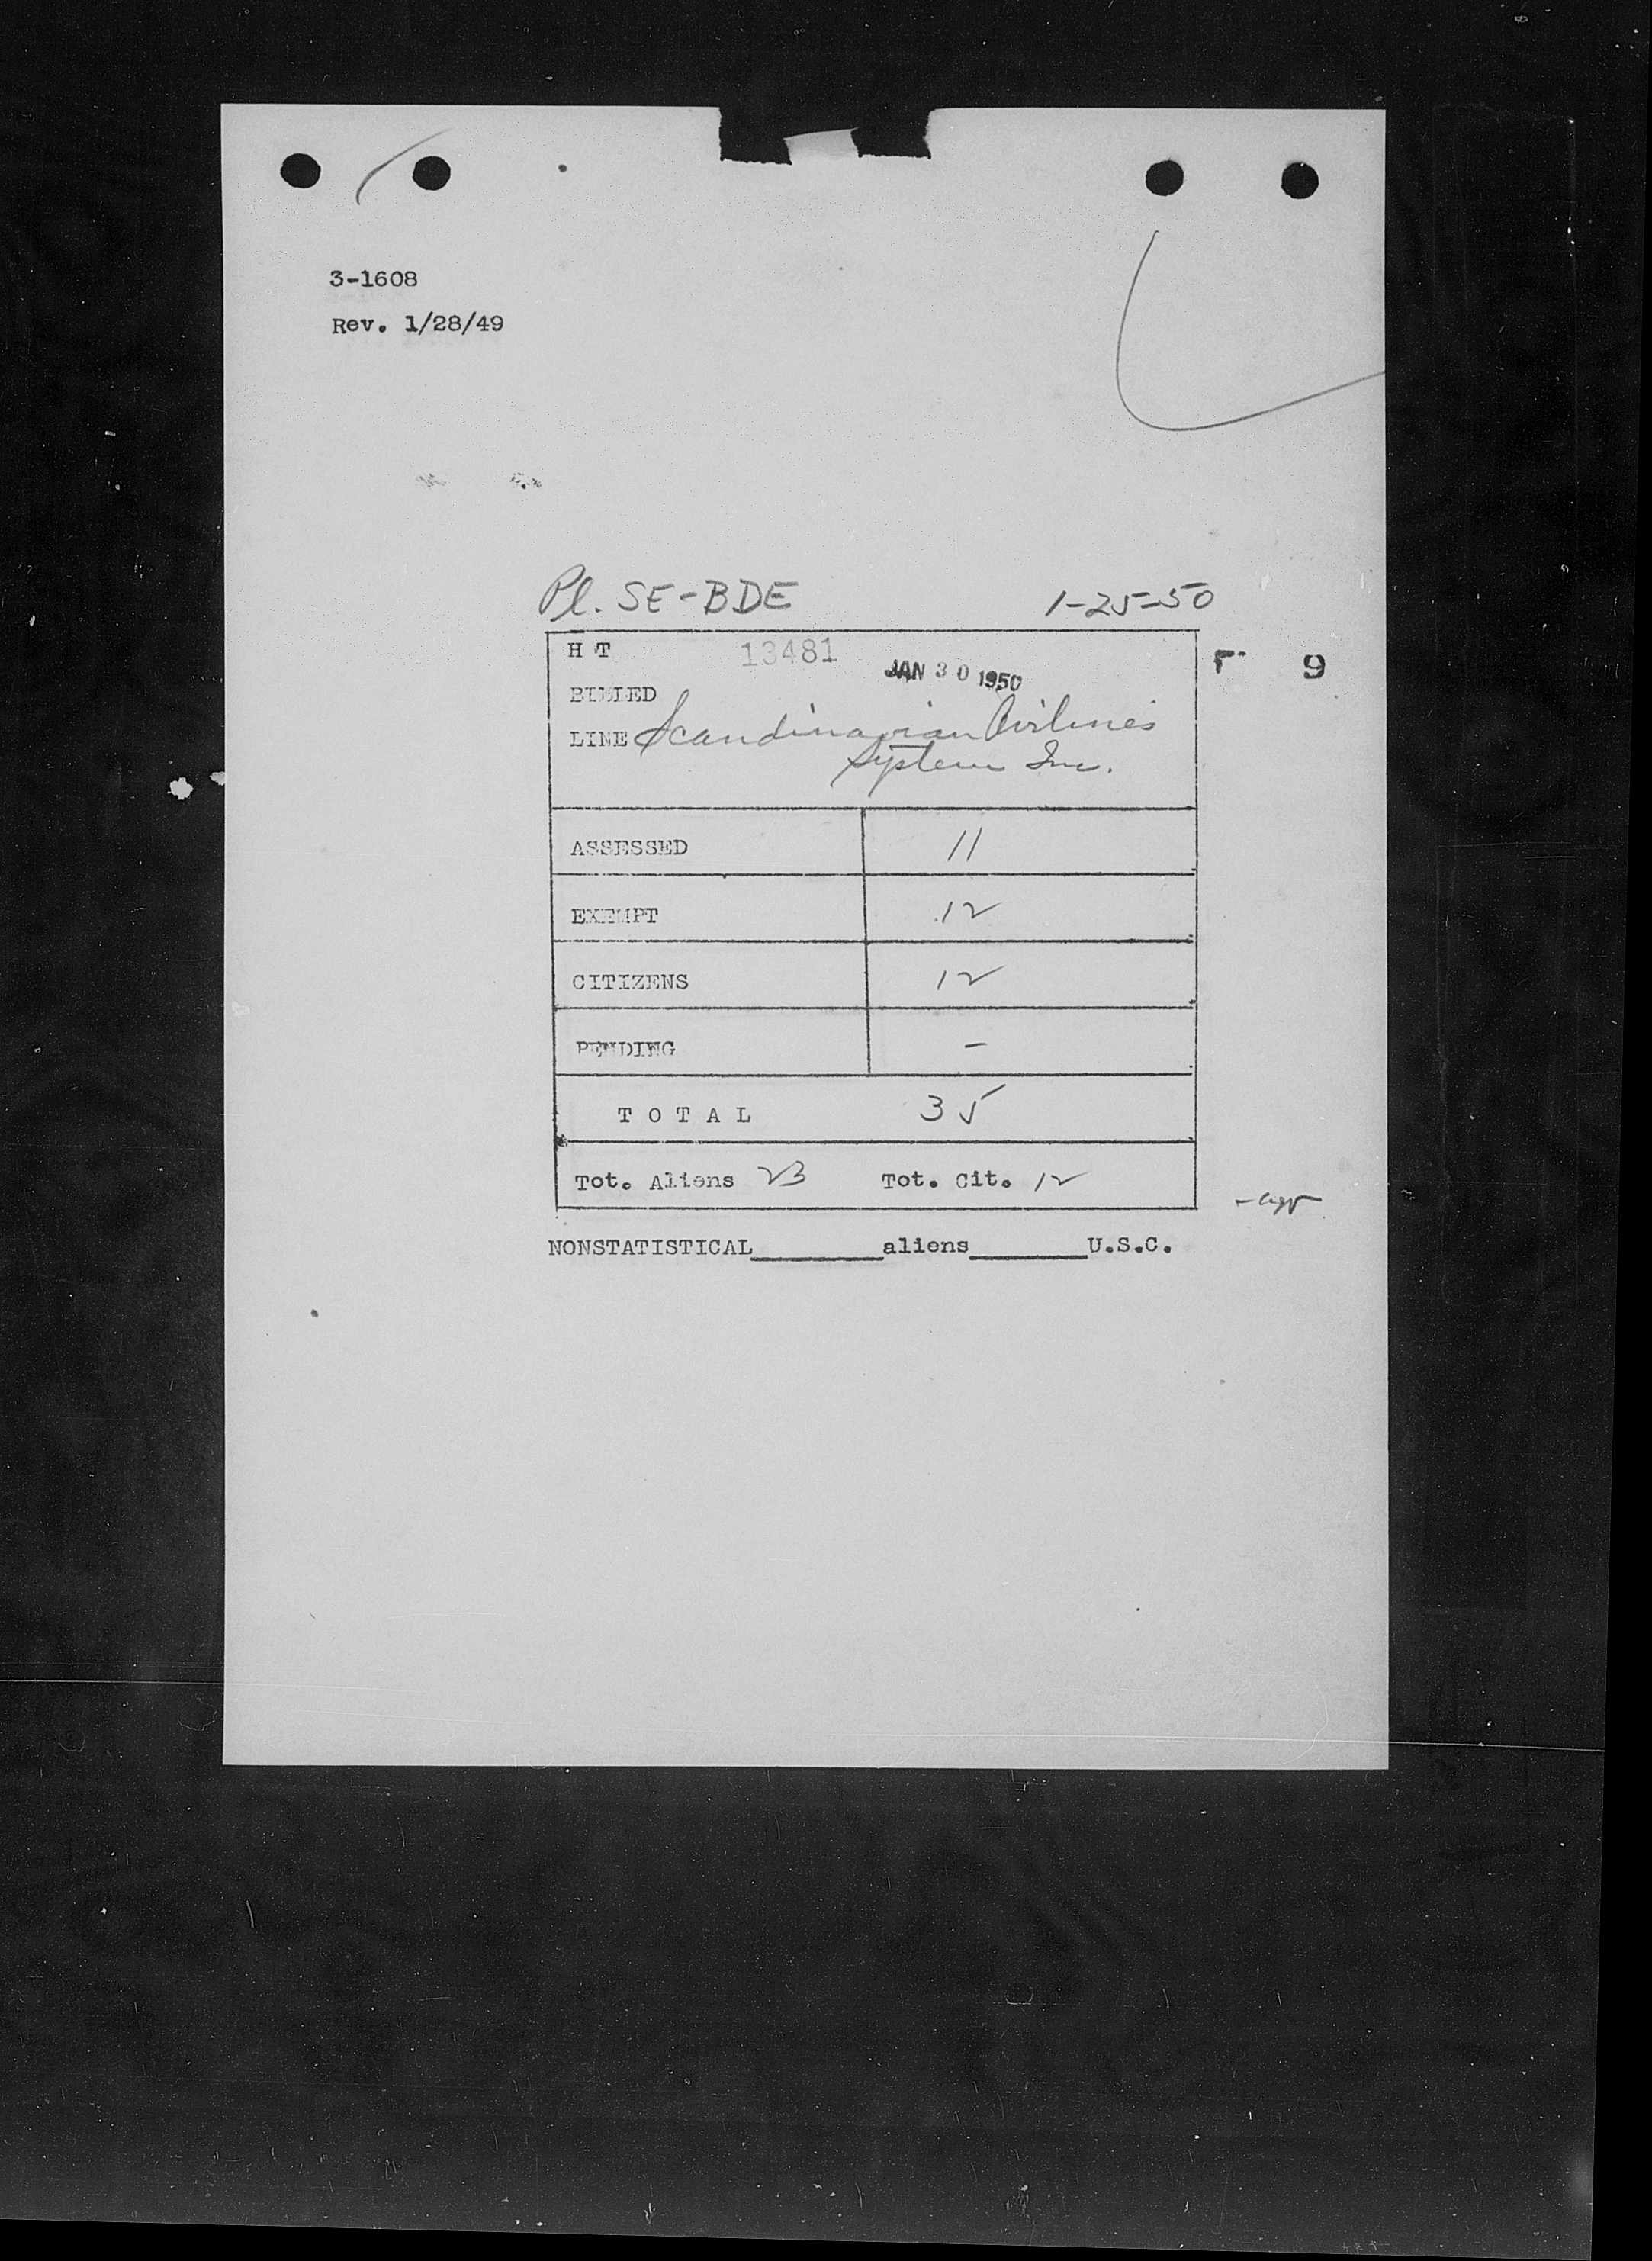 3-1608
Rev. 1/28/49
Pl. SE-BDE 1-25-50
H T 13481 JAN 30 1950 9
BILLED
LINE Scandinavian Airlines
System Inc.
ASSESSED 11
EXEMPT 12
CITIZENS 12
PENDING -
TOTAL 35
Tot. Aliens 23 Tot. Cit. 12
NONSTATISTICAL________aliens________U.S.C.